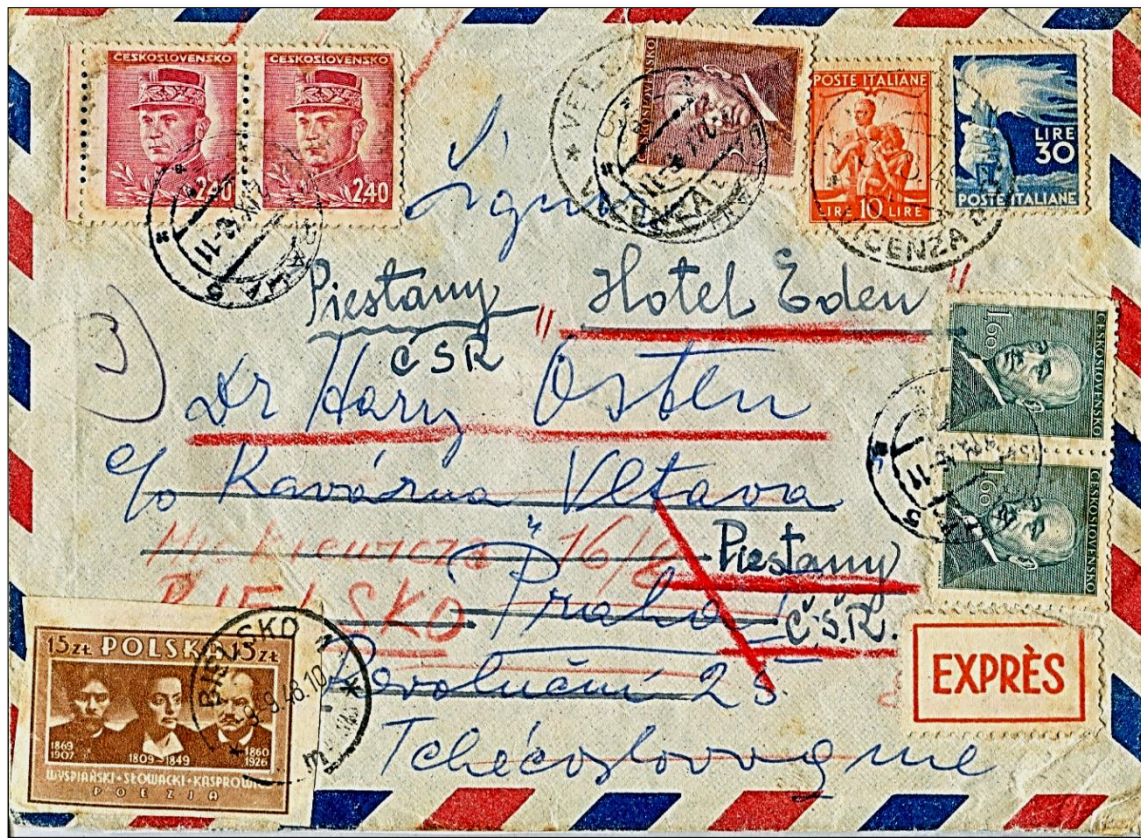 ČESKOSLOVENSKO
2·40
ČESKOSLOVENSKO
2·40
ČESKOSLOVENSKO
POSTE ITALIANE
LIRE 10 LIRE
LIRE
30
POSTE ITALIANE
VICENZA
Piestany
" Hotel Eden "
ČSR
Dr Harry Osten
c/o Kavárna Vltava
Mickiewicza 16/8
Piestany
BIELSKO
Praha
Č.S.R.
Revoluční 25
Tchécoslovaquie
1·60
ČESKOSLOVENSKO
1·60
ČESKOSLOVENSKO
EXPRÈS
15ZŁ POLSKA 15ZŁ
1869
1907
1809-1849
1860
1926
WYSPIAŃSKI·SŁOWACKI·KASPROWICZ
POEZJA
BIELSKO
9.48.10